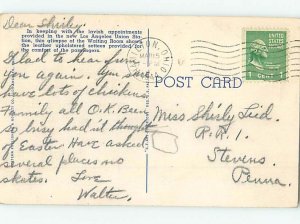 Dear Shirley
In keeping with the lavish appointments
provided in the new Los Angeles Union Sta-
tion, this glimpse of the Waiting Room shows
the leather upholstered settees provided for
the comfort of the passengers.
Glad to hear from
you again. You sure
have lots of chickens.
Family all O.K. Been
so busy had'nt thought
of Easter. Have asked
several places no
skates. Love
Walter
POST CARD
1 CENT 1
Miss Shirly Leid
R.R.1.
Stevens
Penna.